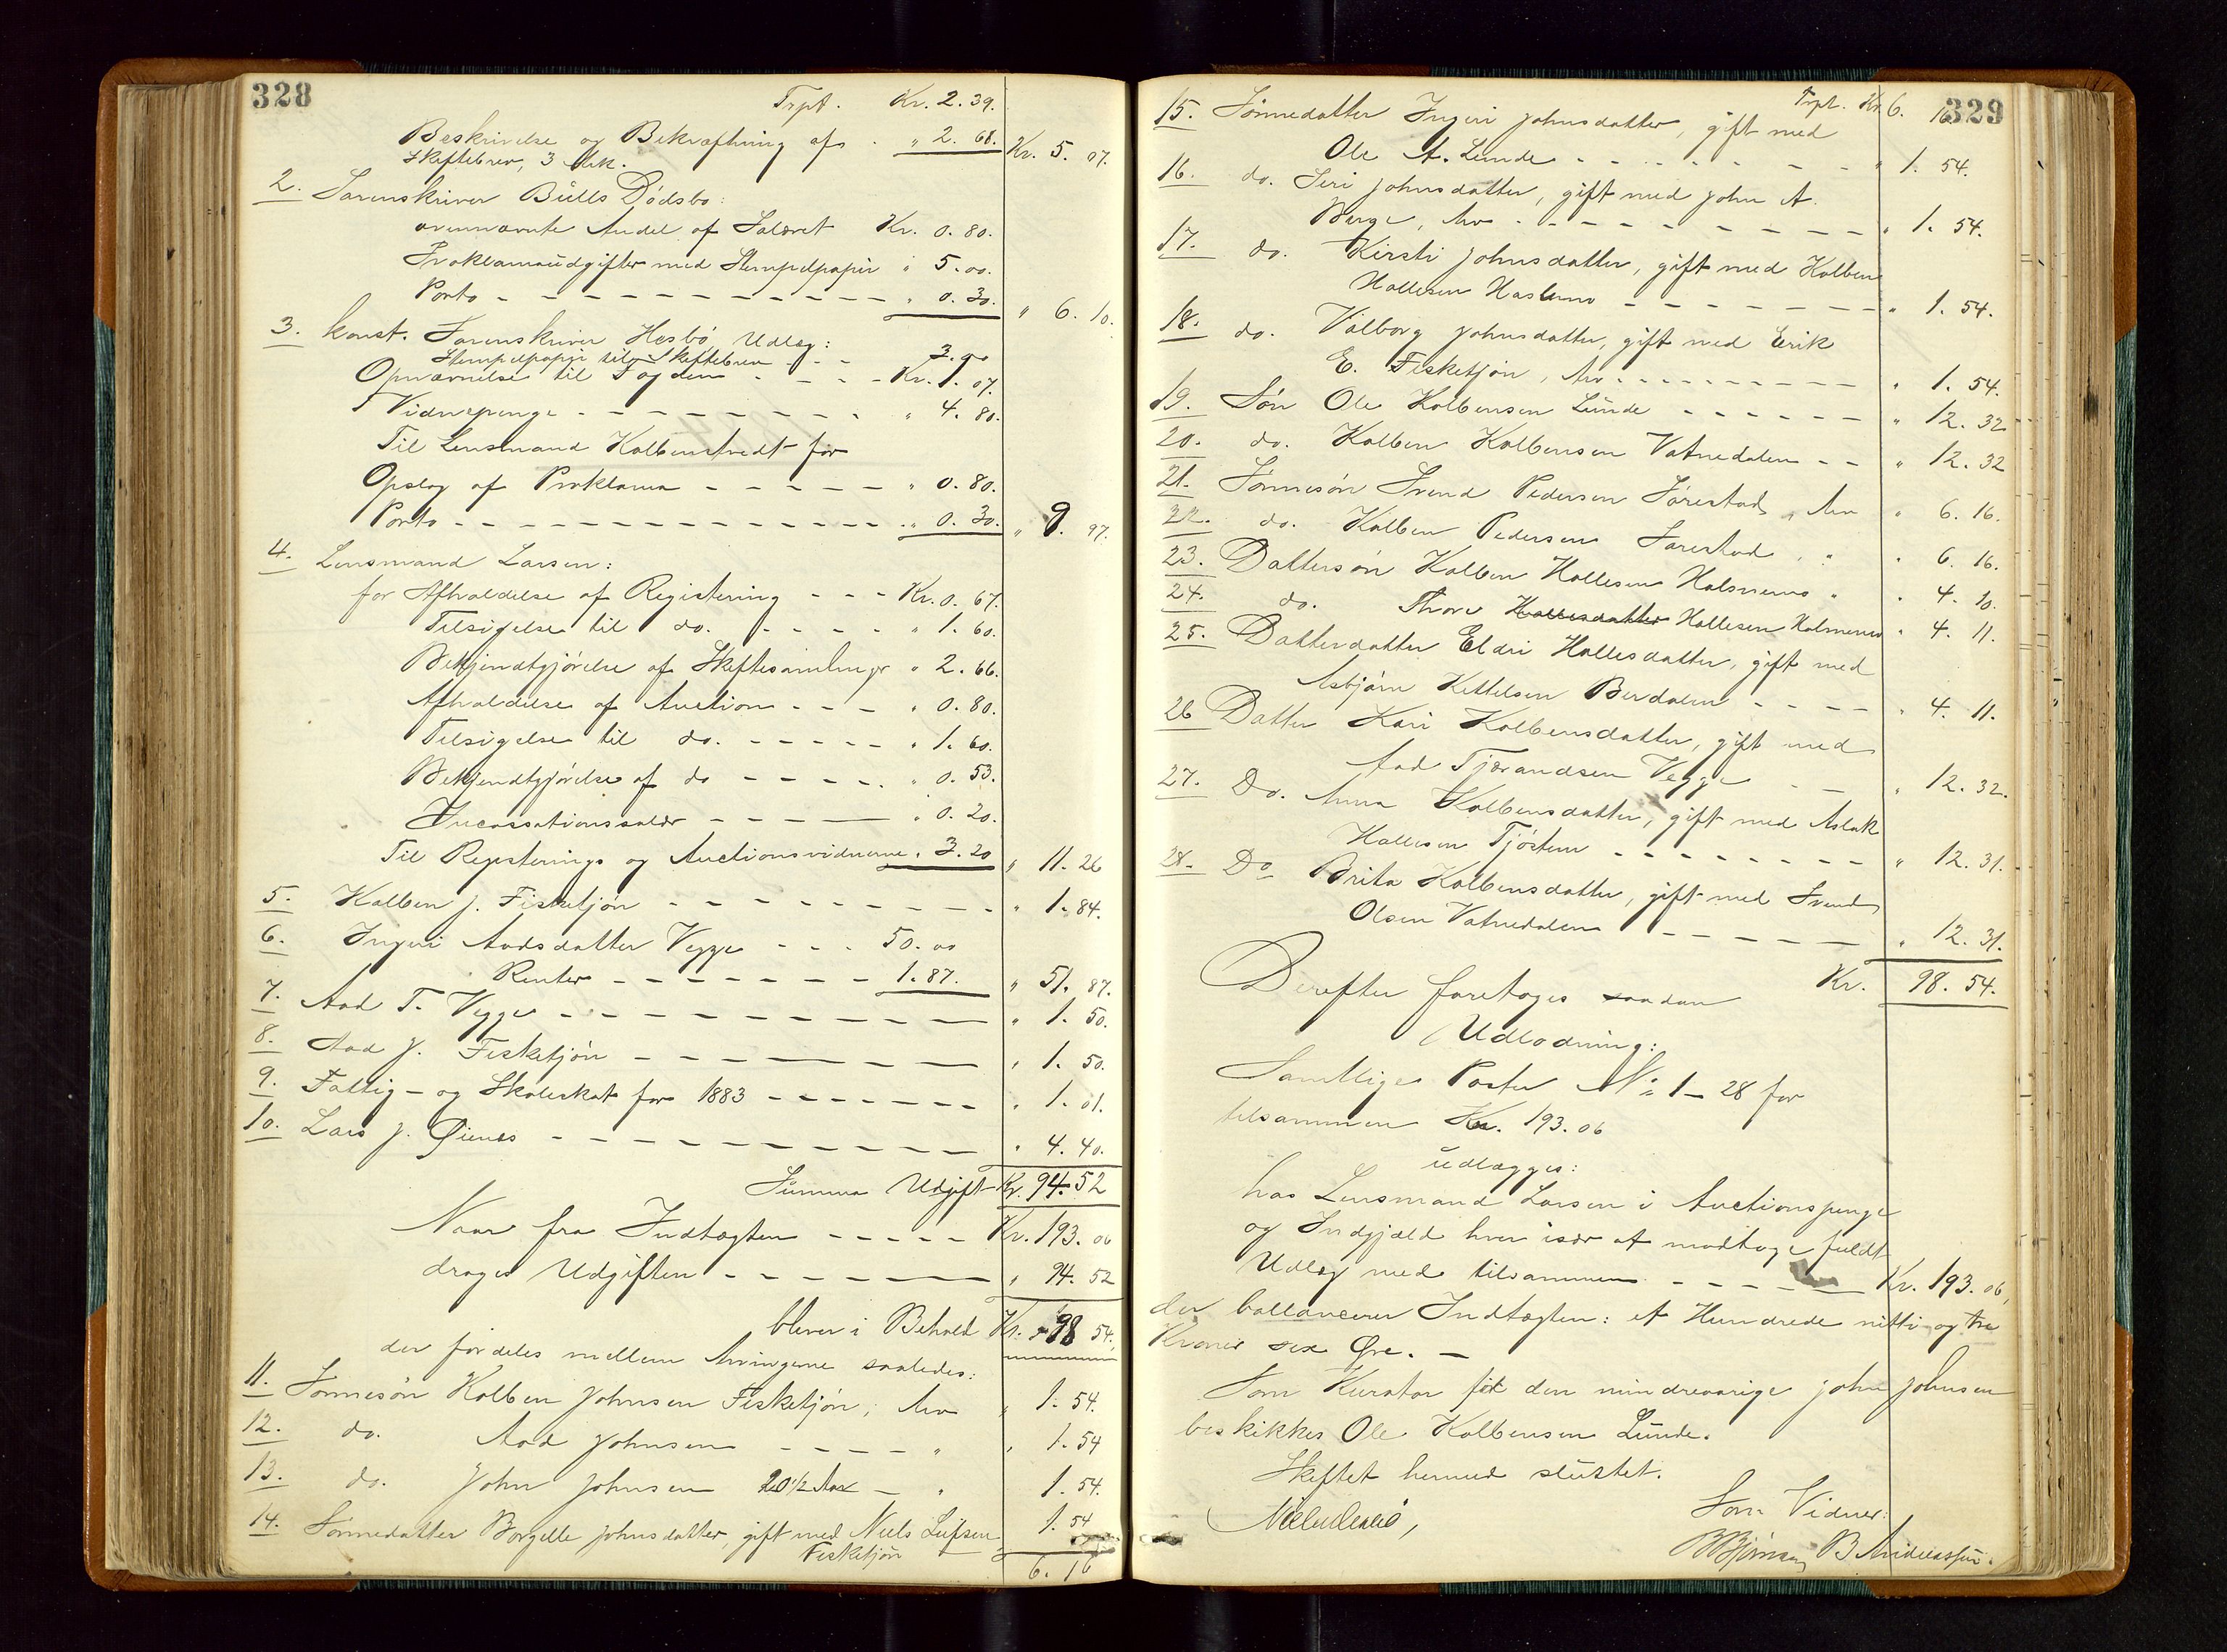 328
Trpt. Kr. 2.39.
Beskrivelse og Bekræftning af " 2. 68. Kr. 5. 07.
Skiftebrev, 3 Ark.
2. Sorenskriver Bülls Dödsbo:
ovennævnte Andel af Salæret Kr. 0. 80.
Proklamaudgifter med Stempelpapir " 5. 00.
Porto - - - " 0. 30. " 6. 10.
3. konst. Sorenskriver Hesbö, Udlæg:
Stempelpapir til Skiftebrev - - 3.00
Opnævnelse til Fogden - - - Kr. 1. 07.
Vidnepenge - - - " 4. 80.
Til Lensmand Kolbenstvedt for
Opslag af Proklama - - - " 0. 80.
Porto - - - " 0. 30. " 9. 97.
4. Lensmand Larsen:
for Afholdelse af Registering - - - Kr. 0. 67.
Tilsigelse til do. - - - " 1. 60.
Bekjendtgjörelse af Skiftesamlinger " 2. 66.
Afholdelse af Auction - - - " 0. 80.
Tilsigelse til do. - - - " 1. 60.
Bekjendtgjörelse af do - - - " 0. 53.
Incassationssalær - - - " 0. 20.
Til Registerings og Auctionsvidnerne " 3. 20 " 11. 26
5. Kolben J. Fisketjön - - - " 1. 84.
6. Ingeri Aadsdatter Vegge - - - 50. 00
Renter - - - 1. 87. " 51. 87.
7. Aad T. Vegge - - - " 1. 50.
8. Aad J. Fisketjön - - - " 1. 50.
9. Fattig- og Skoleskat for 1883 - - - " 1. 01.
10. Lars J. Øienes - - - " 4. 40.
Summa Udgift Kr. 94. 52
Naar fra Indtægten - - - Kr. 193. 06
drages Udgiften - - - " 94. 52
bliver i Behold Kr. 98 54.
der fordeles mellem Arvingerne saaledes:
11. Sønnesön Kolben Johnsen Fisketjön, Arv " 1. 54.
12. do. Aad Johnsen - - - " " 1. 54
13. do. John Johnsen 20 1/2 Aar - " 1. 54.
14. Sønnedatter Borgille Johnsdatter, gift med Niels
Fisketjön 1. 54
6. 16
329
Trpt. Kr. 6. 16
15. Sønnedatter Ingeri Johnsdatter, gift med
Ole A. Lunde - - - " 1. 54.
16. do. Siri Johnsdatter, gift med John A.
Berge, Arv - - - " 1. 54.
17. do. Kirsti Johnsdatter, gift med Kolben
Hallesen - - - " 1. 54.
18. do. Valborg Johnsdatter, gift med Erik
E. Fisketjön, Arv - - - " 1. 54.
19. Sön Ole Kolbensen Lunde - - - " 12. 32
20. do. Kolben Kolbensen Vatnedalen - - " 12. 32
21. Sønnesön Svend Pedersen Sørestad, Arv " 6. 16.
22. do. Kolben Pedersen Sørestad, " " 6. 16.
23. Dattersön Kolben Hallesen Holmenes " " 4. 10.
24. do. Thore Hallesdatter Hallesen Holmenes " 4. 11.
25. Datterdatter Eldri Hallesdatter, gift med
Asbjörn Kittelsen Berdalen - - - " 4. 11.
26 Datter Kari Kolbensdatter, gift med
Aad Tjærandsen Vegge - - " 12. 32.
27. Do. Anna Kolbensdatter, gift med Aslak
Hallesen Tjöstem - - - " 12. 31.
28. Do Brita Kolbensdatter, gift med Svend
Olsen Vatnedalen - - - " 12. 31.
Kr. 98. 54.
Derefter foretages saadan
Udlodning:
Samtlige Poster No 1 - 28 for
tilsammen Kr. 193. 06
udlægges:
hos Lensmand Larsen i Auctionspenge
og Indgjæld hver især at modtage fuldt
Udlæg med tilsammen - - - Kr. 193. 06,
der ballancerer Indtægten: et Hundrede nitti og tre
Kroner sex Øre. -
Som Kurator for den mindreaarige John Johnsen
beskikkes Ole Kolbensen Lunde.
Skiftet hermed sluttet.
Som Vidner: